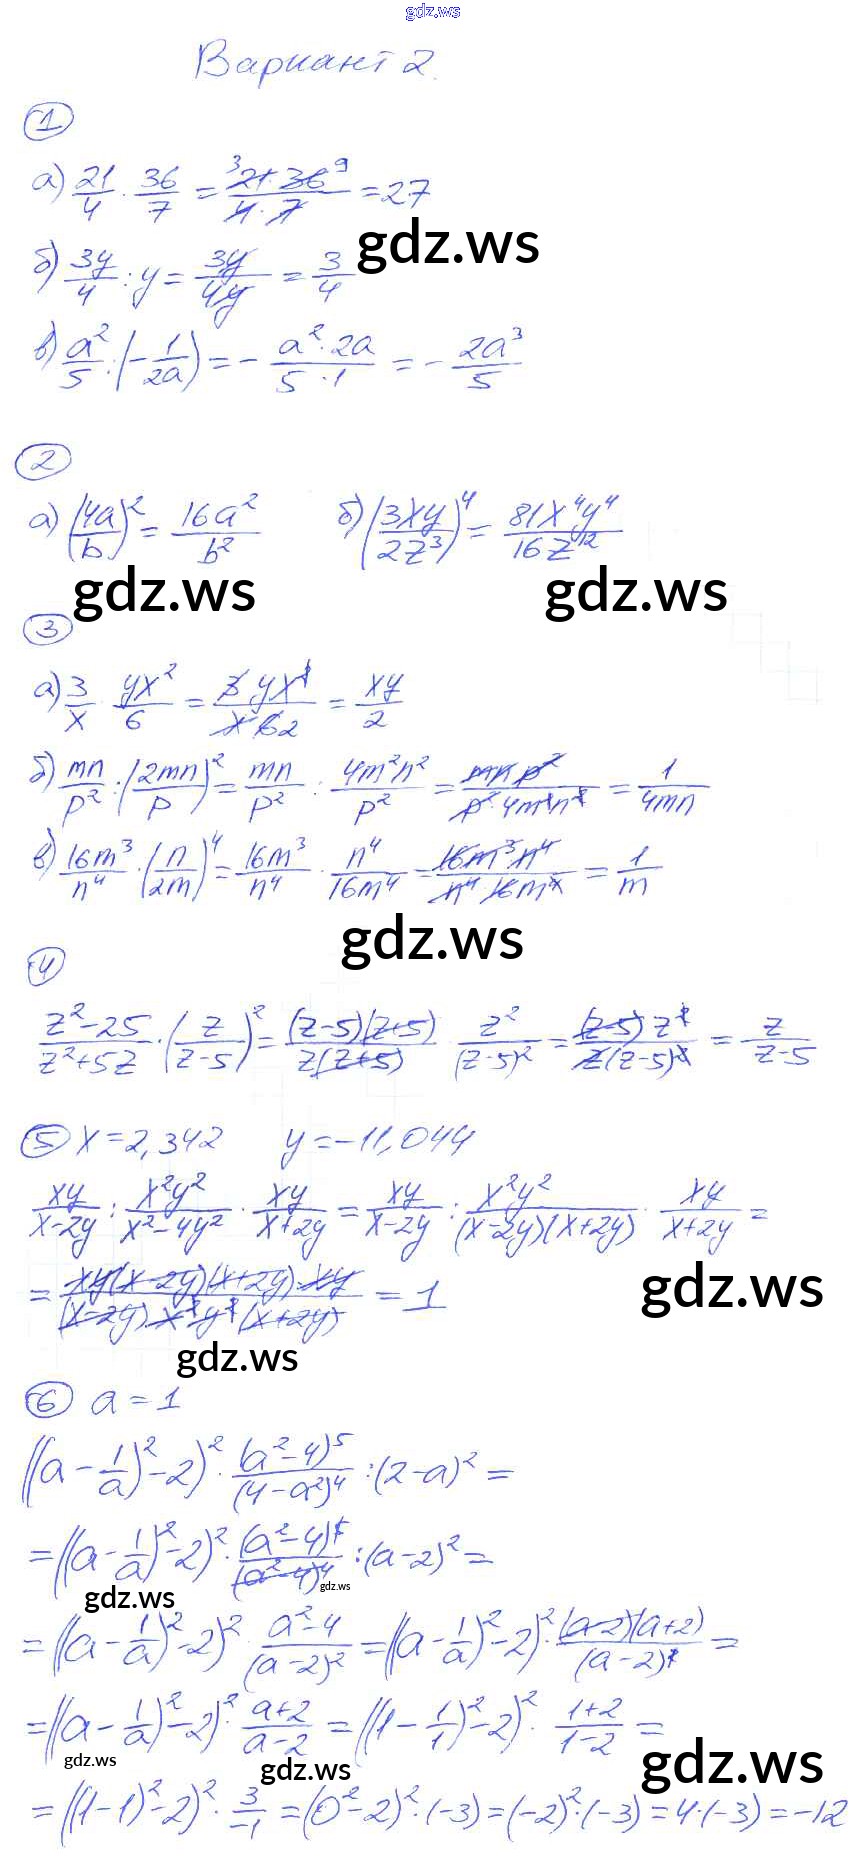 gdz.ws
Вариант 2.
1
а) 21/4 · 36/7 = (³21·36⁹)/(4·7) = 27
gdz.ws
б) 3y/4 : y = 3y/4y = 3/4
в) a²/5 : (-1/2a) = - (a²·2a)/(5·1) = - 2a³/5
2
а) (4a/b)² = 16a²/b² б) (3xy/2z³)⁴ = 81x⁴y⁴/16z¹²
gdz.ws gdz.ws
3
а) 3/x · yx²/6 = 3yx²/x·6 2 = xy/2
б) mn/p² : (2mn/p)² = mn/p² : 4m²n²/p² = mn p²/p²·4m²n² = 1/4mn
в) 16m³/n⁴ · (n/2m)⁴ = 16m³/n⁴ · n⁴/16m⁴ = 16m³n⁴/n⁴·16m⁴ = 1/m
gdz.ws
4
(z²-25)/(z²+5z) · (z/(z-5))² = (z-5)(z+5)/z(z+5) · z²/(z-5)² = (z-5)z²/z(z-5)² = z/(z-5)
5 x=2,342 y=-11,044
xy/(x-2y) : x²y²/(x²-4y²) · xy/(x+2y) = xy/(x-2y) : x²y²/(x-2y)(x+2y) · xy/(x+2y) =
= xy(x-2y)(x+2y)·xy/(x-2y)·x²y²(x+2y) = 1
gdz.ws
gdz.ws
6 a=1
((a - 1/a)² - 2)² · (a²-4)⁵/(4-a²)⁴ : (2-a)² =
= ((a - 1/a)² - 2)² · (a²-4)⁵/(a²-4)⁴ : (a-2)² =
gdz.ws gdz.ws
= ((a - 1/a)² - 2)² · (a²-4)/(a-2)² = ((a - 1/a)² - 2)² · (a-2)(a+2)/(a-2)² =
= ((a - 1/a)² - 2)² · (a+2)/(a-2) = ((1 - 1/1)² - 2)² · (1+2)/(1-2) =
gdz.ws gdz.ws gdz.ws
= ((1-1)² - 2)² · 3/-1 = (0² - 2)² · (-3) = (-2)² · (-3) = 4·(-3) = -12